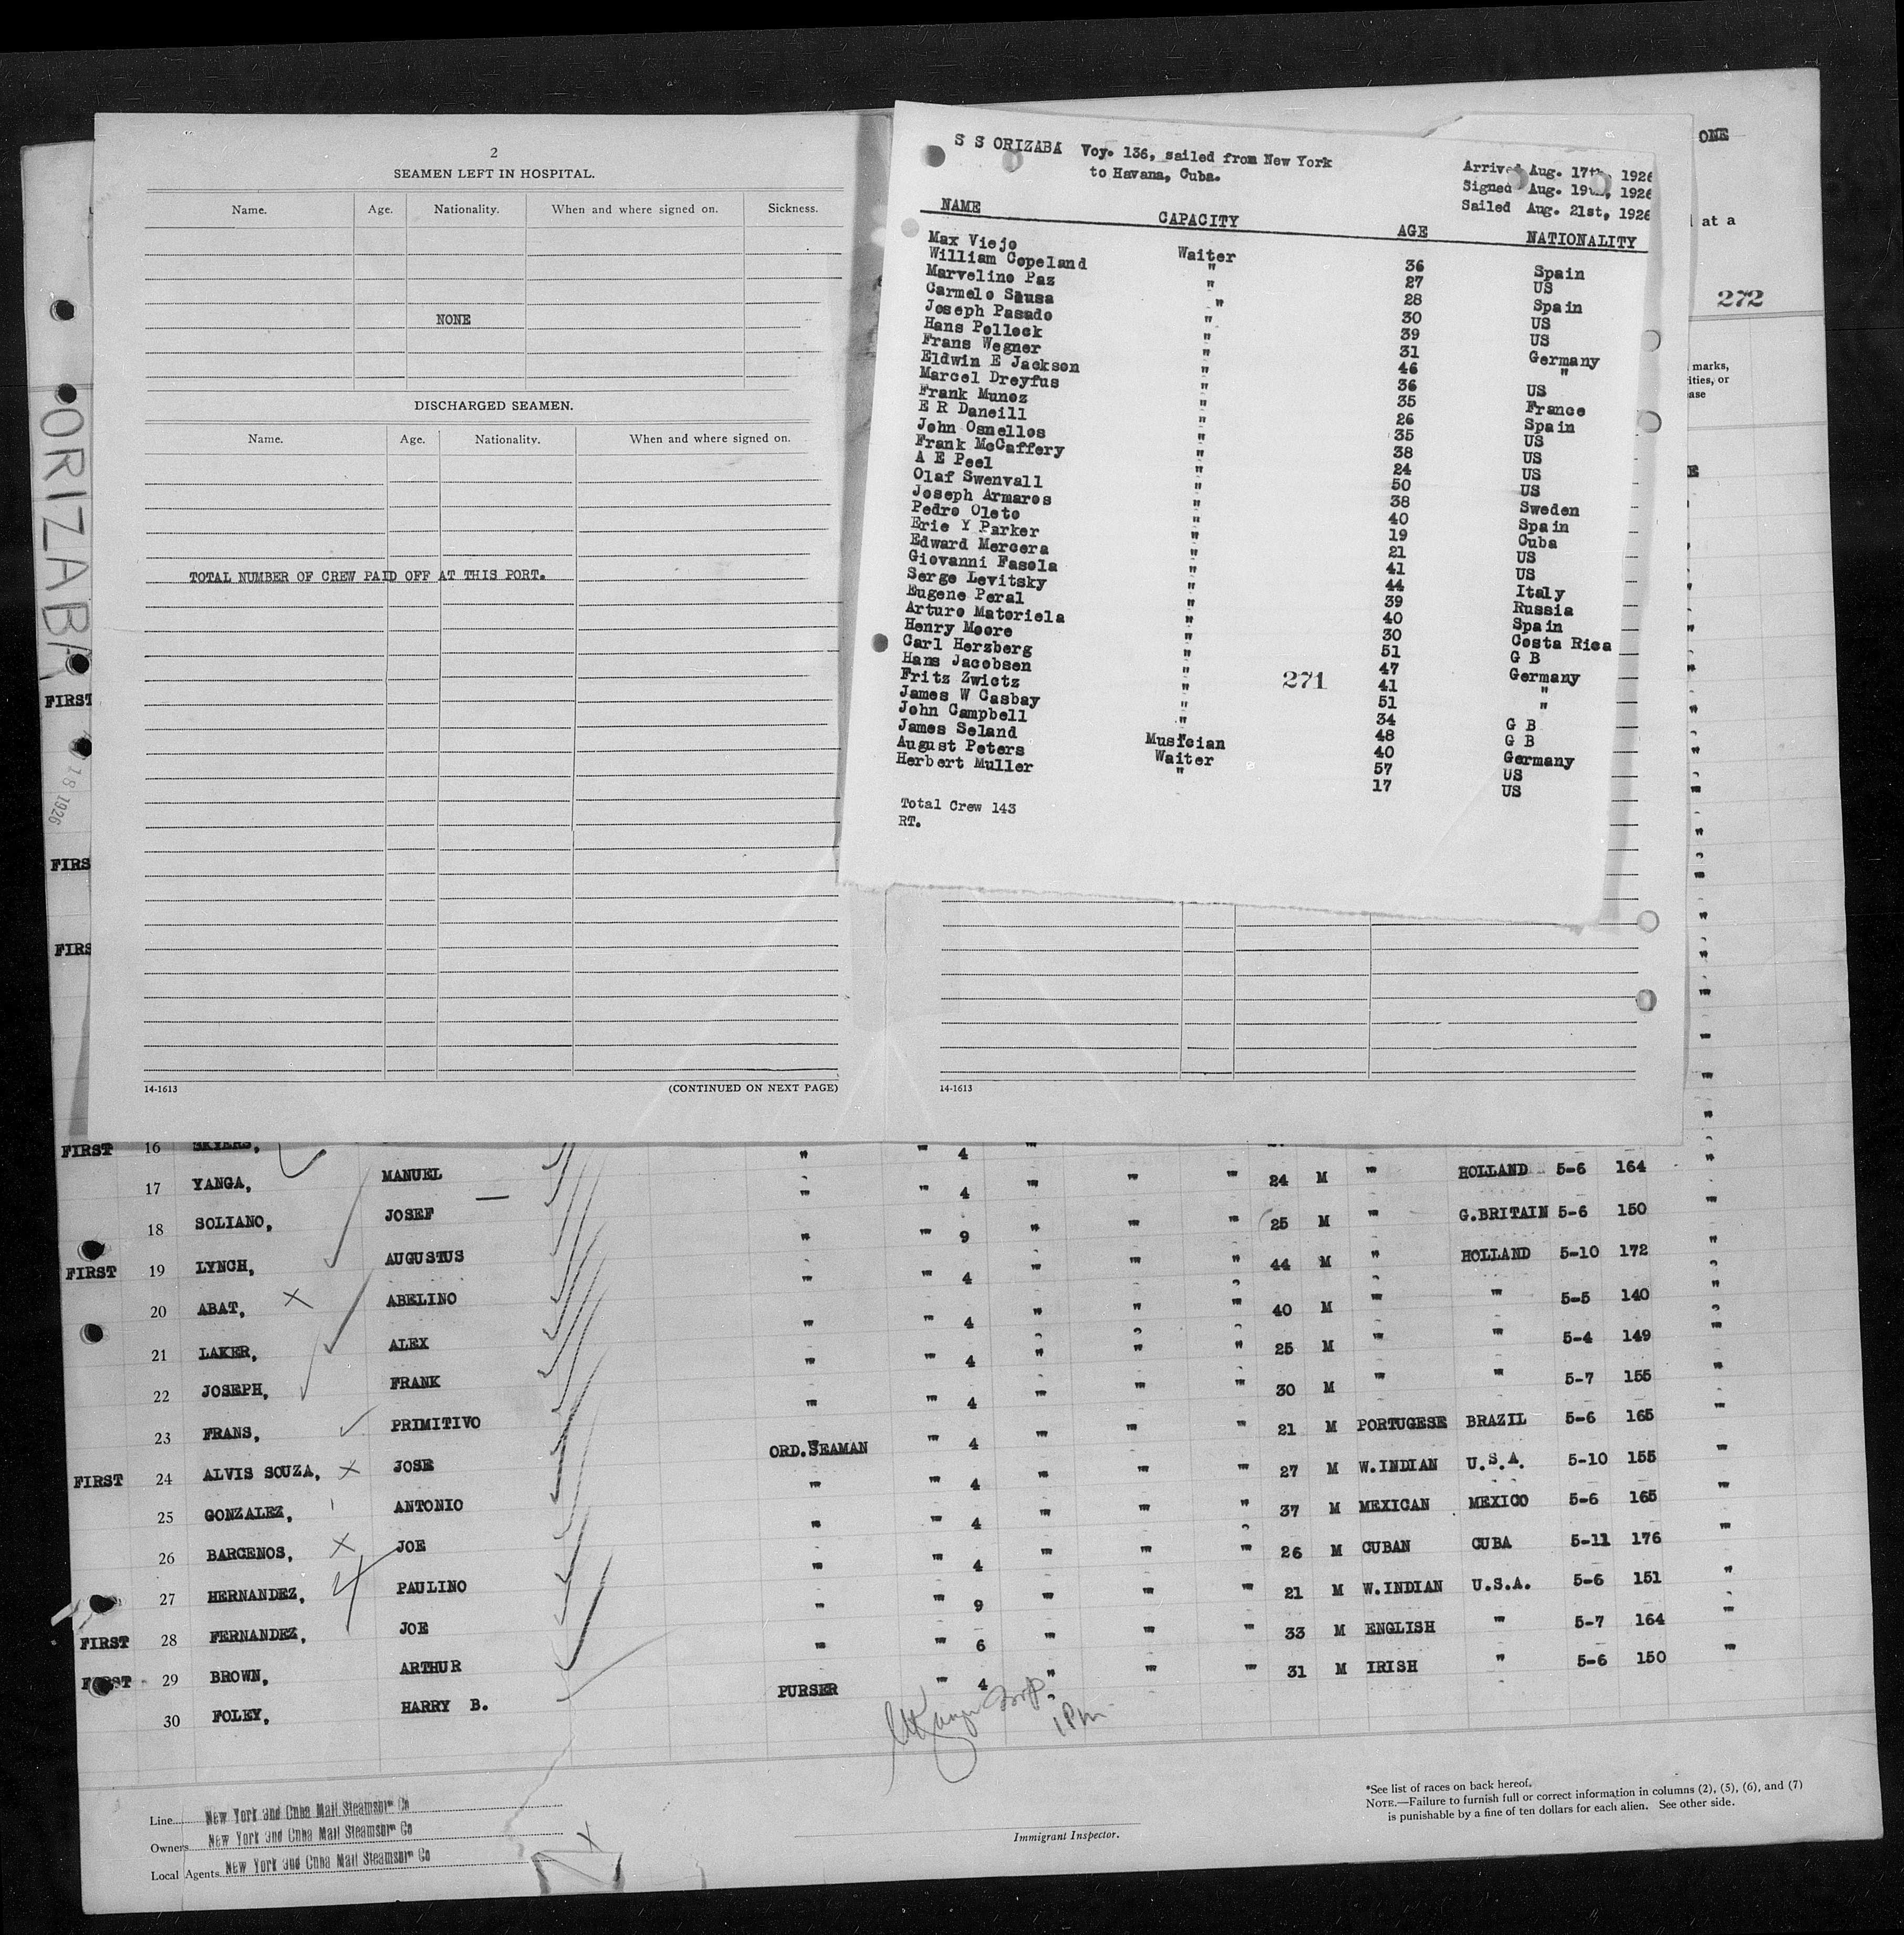 ONE
at a
272
marks,
ities, or
ase
ORIZABA
FIRST
18 1926
FIRS
FIRS
2
SEAMEN LEFT IN HOSPITAL.
Name. Age. Nationality. When and where signed on. Sickness.
NONE
DISCHARGED SEAMEN.
Name. Age. Nationality. When and where signed on.
TOTAL NUMBER OF CREW PAID OFF AT THIS PORT.
14-1613 (CONTINUED ON NEXT PAGE)
S S ORIZABA Voy. 136, sailed from New York
to Havana, Cuba.
Arrived Aug. 17th, 1926
Signed Aug. 19th, 1926
Sailed Aug. 21st, 1926
NAME CAPACITY AGE NATIONALITY
Max Viejo Waiter 36 Spain
William Copeland " 27 US
Marvelino Paz " 28 Spain
Carmelo Sausa " 30 US
Joseph Pasado " 39 US
Hans Pollock " 31 Germany
Frans Wegner " 46 "
Eldwin E Jackson " 36 US
Marcel Dreyfus " 35 France
Frank Munoz " 26 Spain
E R Daneill " 35 US
John Osnellos " 38 US
Frank McCaffery " 24 US
A E Peel " 50 US
Olaf Swenvall " 38 Sweden
Joseph Armaros " 40 Spain
Pedro Oleto " 19 Cuba
Erie Y Parker " 21 US
Edward Mercera " 41 US
Giovanni Fasola " 44 Italy
Serge Levitsky " 39 Russia
Eugene Peral " 40 Spain
Arturo Matoriela " 30 Costa Rica
Henry Moore " 51 G B
Carl Herzberg " 47 Germany
Hans Jacobsen " 41 "
Fritz Zwietz " 51 "
James W Gasbay " 34 G B
John Campbell " 48 G B
James Seland Musician 40 Germany
August Peters Waiter 57 US
Herbert Muller " 17 US
271
Total Crew 143
RT.
14-1613
FIRST 16 SKYERS,
17 YANGA, MANUEL " " 4 "
18 SOLIANO, JOSEF " " 4 " " " 24 M " HOLLAND 5-6 164 "
FIRST 19 LYNCH, AUGUSTUS " " 9 " " " 25 M " G.BRITAIN 5-6 150 "
20 ABAT, ABELINO " " 4 " " " 44 M " HOLLAND 5-10 172 "
21 LAKER, ALEX " " 4 " " " 40 M " " 5-5 140 "
22 JOSEPH, FRANK " " 4 " " " 25 M " " 5-4 149 "
23 FRANS, PRIMITIVO " " 4 " " " 30 M " " 5-7 155 "
FIRST 24 ALVIS SOUZA, JOSE ORD.SEAMAN " 4 " " " 21 M PORTUGESE BRAZIL 5-6 165 "
25 GONZALEZ, ANTONIO " " 4 " " " 27 M W.INDIAN U.S.A. 5-10 155 "
26 BARCENOS, JOE " " 4 " " " 37 M MEXICAN MEXICO 5-6 165 "
27 HERNANDEZ, PAULINO " " 4 " " " 26 M CUBAN CUBA 5-11 176 "
FIRST 28 FERNANDEZ, JOE " " 9 " " " 21 M W.INDIAN U.S.A. 5-6 151 "
FIRST 29 BROWN, ARTHUR " " 6 " " " 33 M ENGLISH " 5-7 164 "
30 FOLEY, HARRY B. PURSER " 4 " " " 31 M IRISH " 5-6 150 "
1 Pm
Line New York and Cuba Mail Steamship Co
Owners New York and Cuba Mail Steamship Co
Local Agents New York and Cuba Mail Steamship Co
Immigrant Inspector.
*See list of races on back hereof.
NOTE.—Failure to furnish full or correct information in columns (2), (5), (6), and (7)
is punishable by a fine of ten dollars for each alien. See other side.